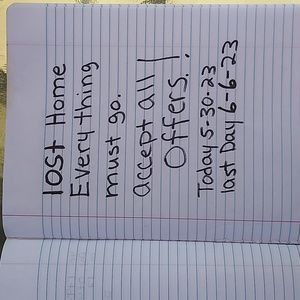 lost Home
Everything
must go.
accept all
Offers.!
Today 5-30-23
last Day 6-6-23